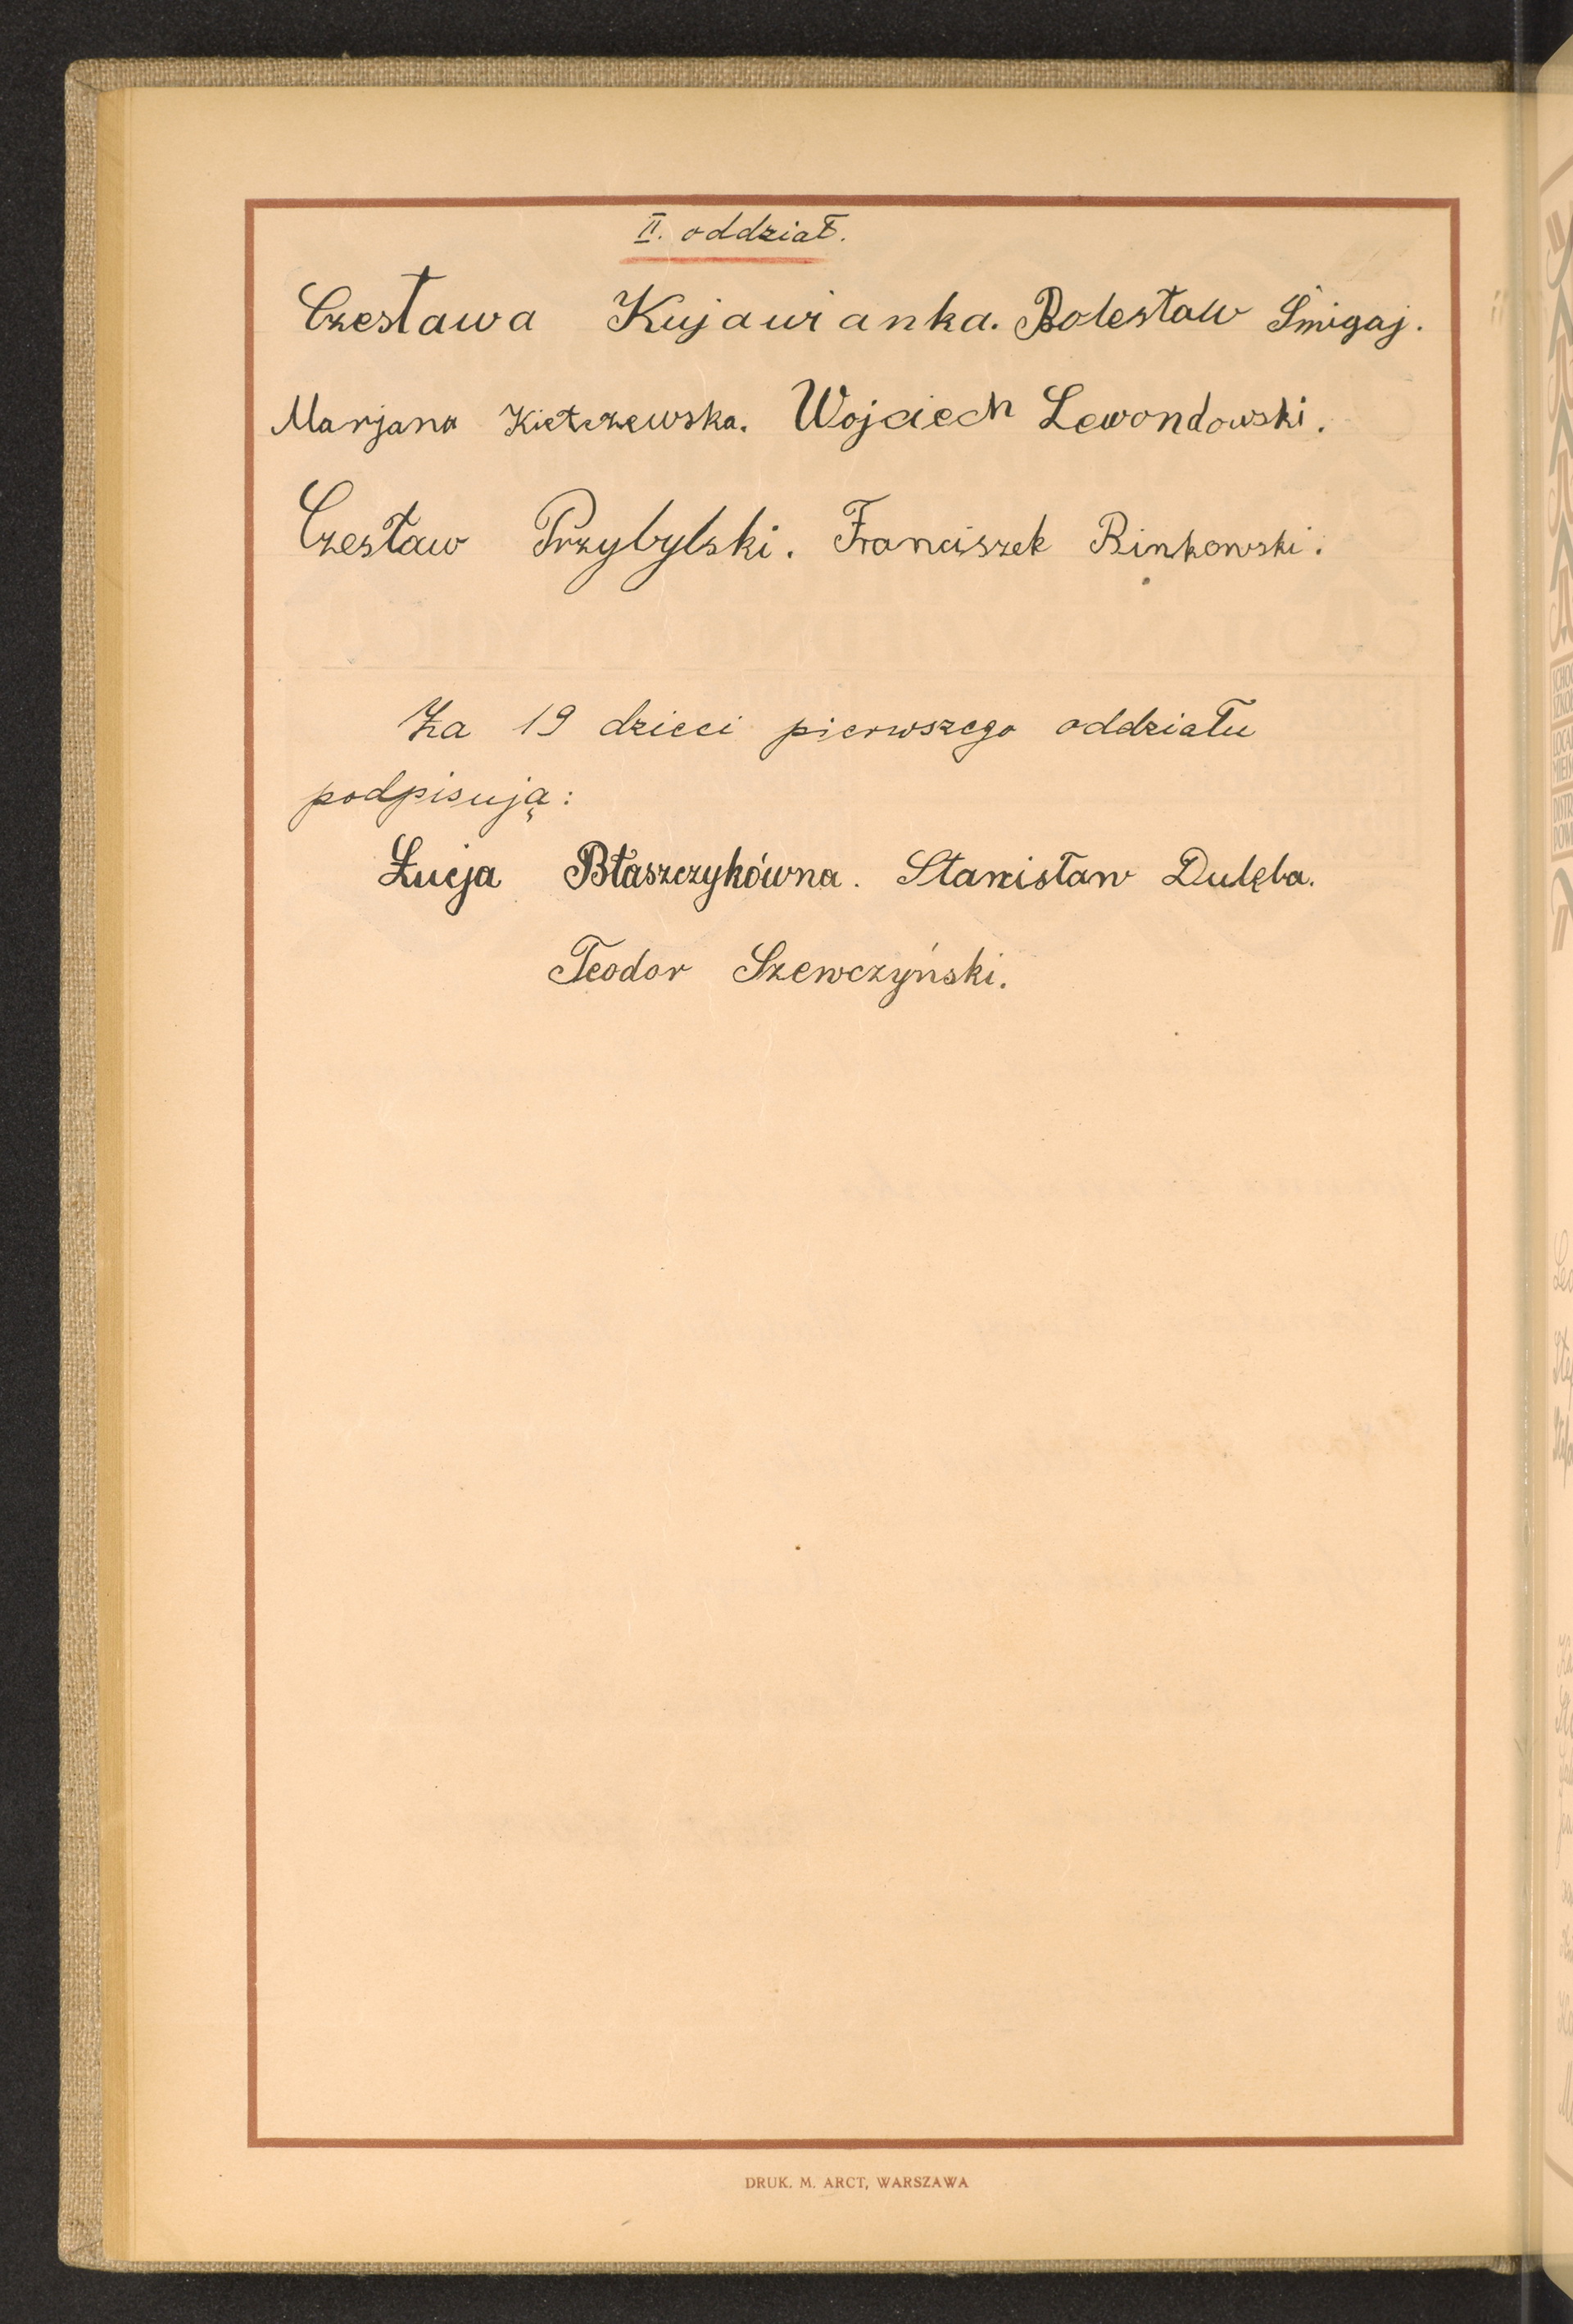 II. oddział.
Czesława Kujawianka. Bolesław Śmigaj.
Marjana Kiełczewska. Wojciech Lewondowski.
Czesław Przybylski. Franciszek Binkowski.
Za 19 dzieci pierwszego oddziału
podpisują:
Łucja Błaszczykówna. Stanisław Dulęba.
Teodor Szewczyński.
DRUK. M. ARCT, WARSZAWA